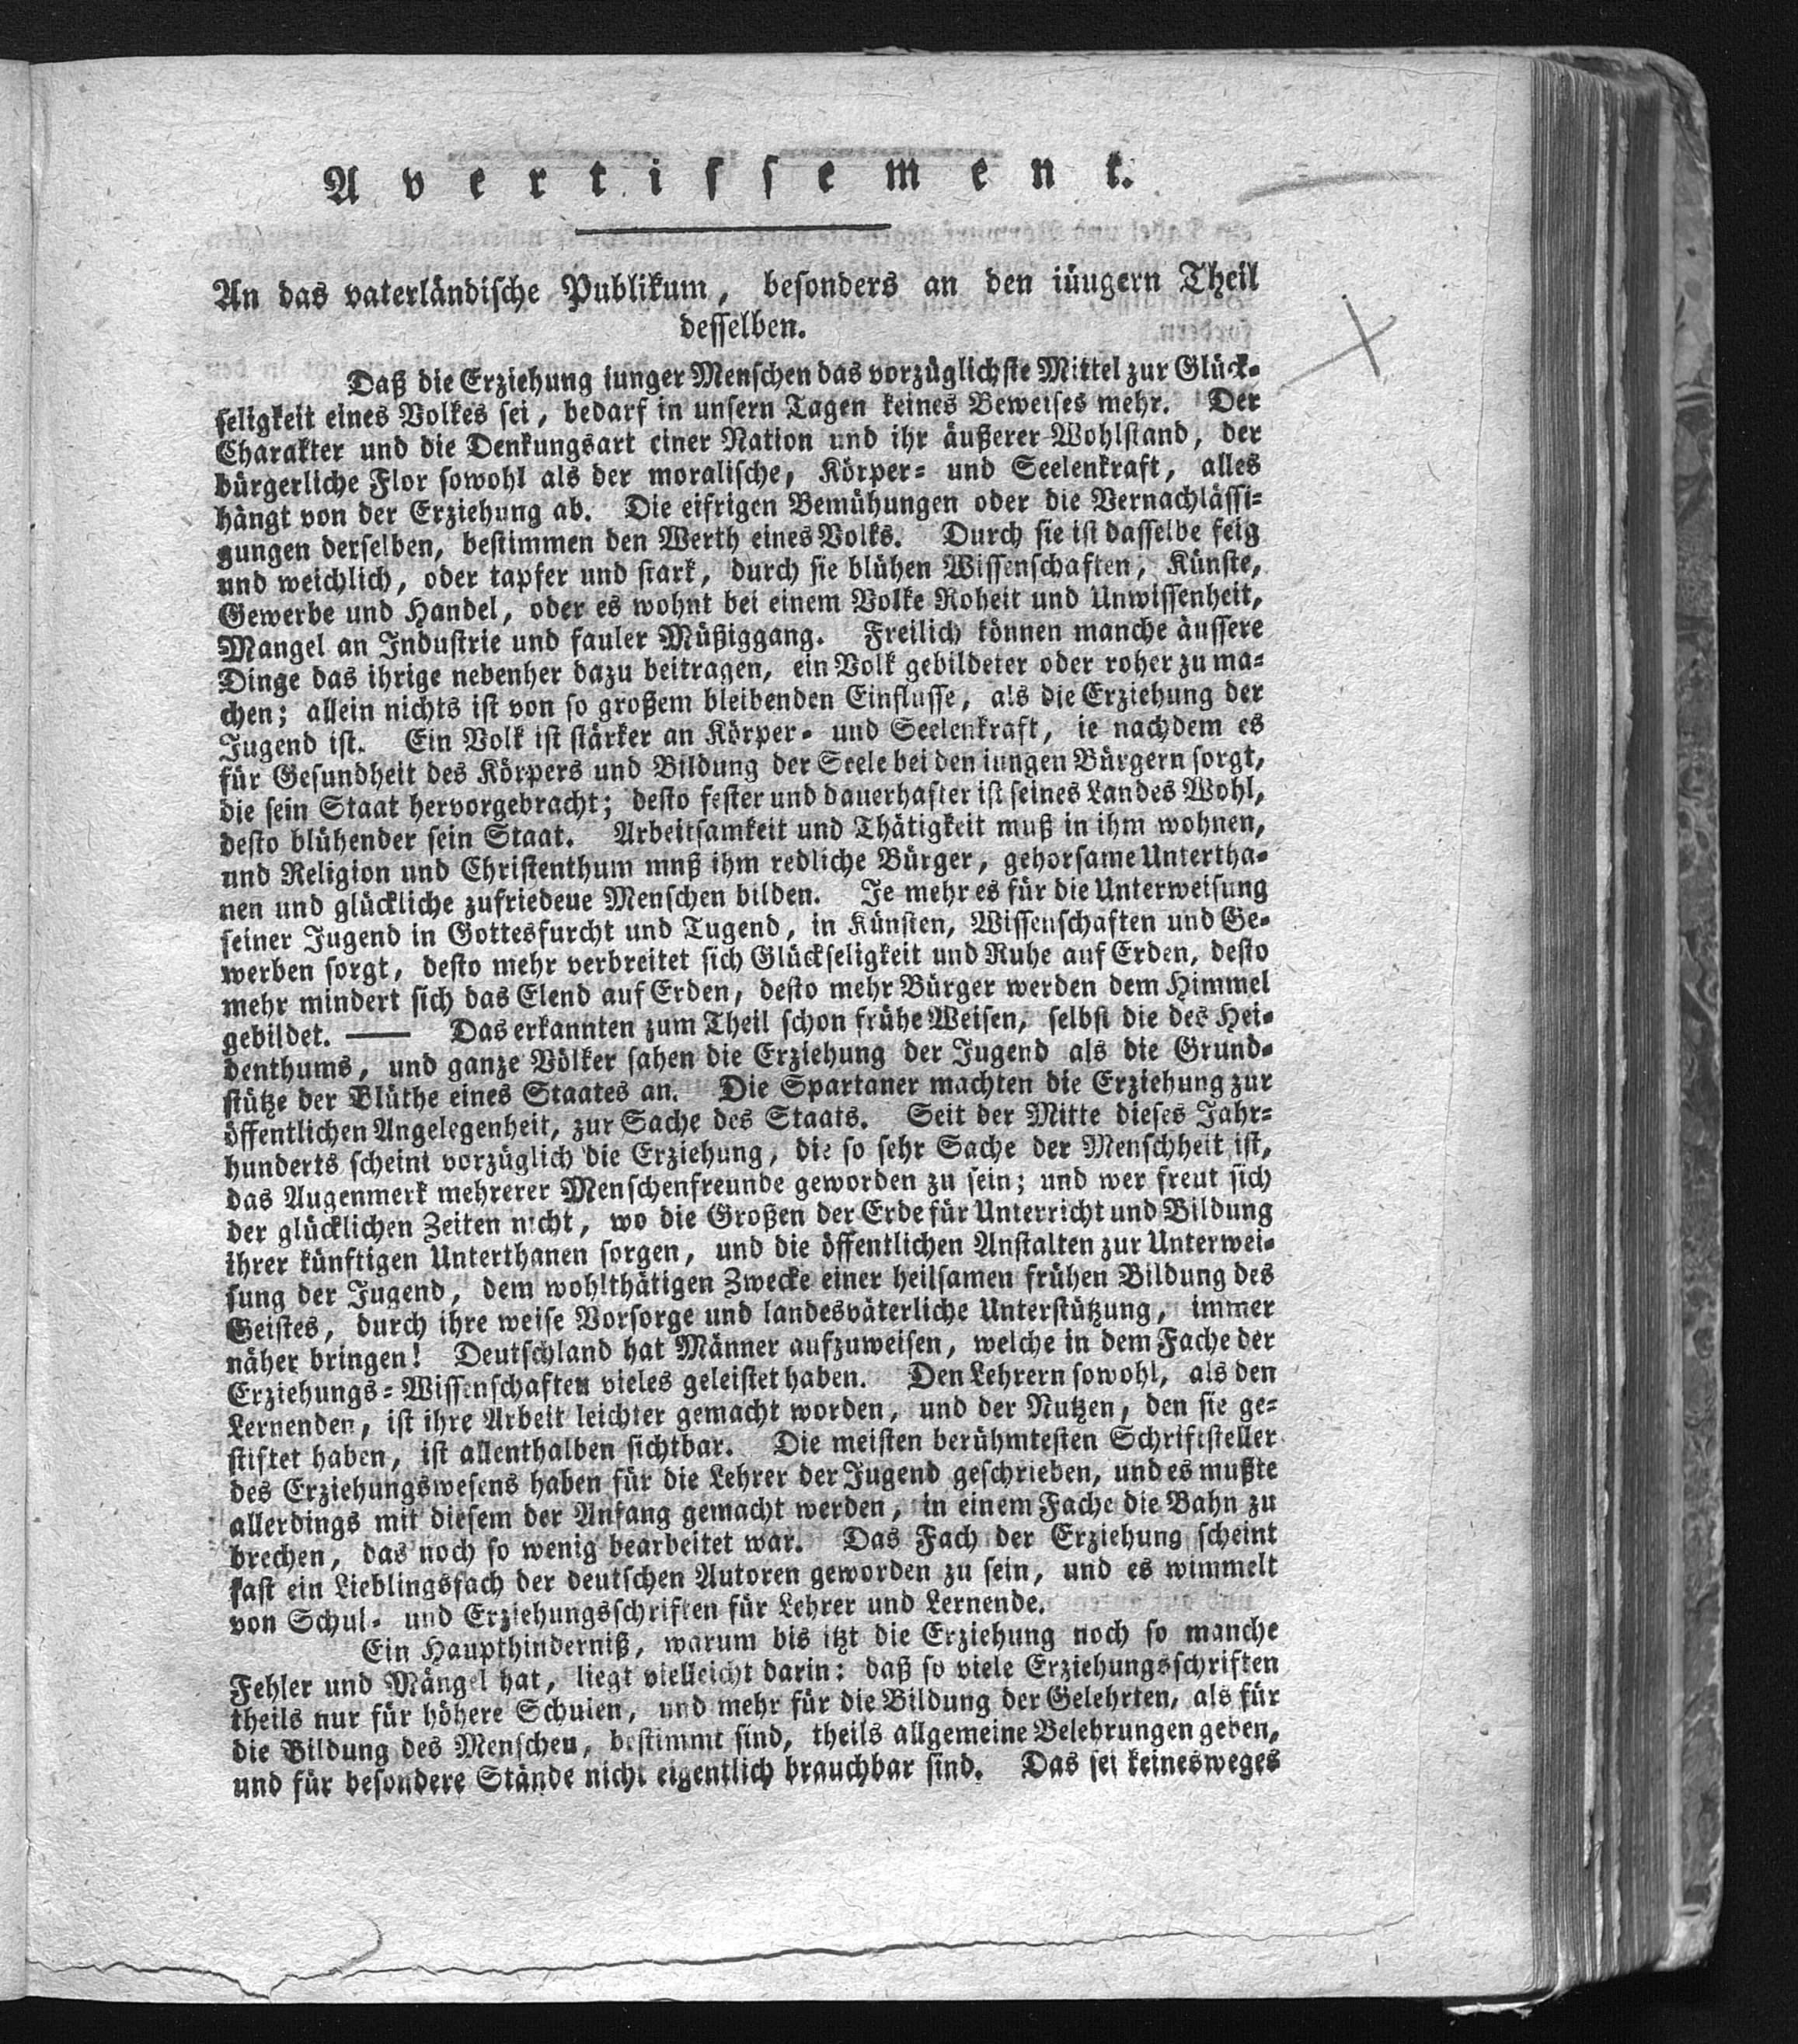 Avertissement.
An das vaterländische Publikum, besonders an den iüugern Theil
desselben.
Daß die Erziehung iunger Menschen das vorzüglichste Mittel zur Glück-
seligkeit eines Volkes sei, bedarf in unsern Tagen keines Beweises mehr. Der
Charakter und die Denkungsart einer Nation und ihr äußerer Wohlstand, der
bürgerliche Flor sowohl als der moralische, Körper- und Seelenkraft, alles
hängt von der Erziehung ab. Die eifrigen Bemühungen oder die Vernachlässi-
gungen derselben, bestimmen den Werth eines Volks. Durch sie ist dasselbe feig
und weichlich, oder tapfer und stark, durch sie blühen Wissenschaften, Künste,
Gewerbe und Handel, oder es wohnt bei einem Volke Roheit und Unwissenheit,
Mangel an Industrie und fauler Müßiggang. Freilich können manche äussere
Dinge das ihrige nebenher dazu beitragen, ein Volk gebildeter oder roher zu ma-
chen; allein nichts ist von so großem bleibenden Einflusse, als die Erziehung der
Jugend ist. Ein Volk ist stärker an Körper- und Seelenkraft, ie nachdem es
für Gesundheit des Körpers und Bildung der Seele bei den iungen Bürgern sorgt,
die sein Staat hervorgebracht; desto fester und dauerhafter ist seines Landes Wohl,
desto blühender sein Staat. Arbeitsamkeit und Thätigkeit muß in ihm wohnen,
und Religion und Christenthum muß ihm redliche Bürger, gehorsame Untertha-
nen und glückliche zufriedeue Menschen bilden. Je mehr es für die Unterweisung
seiner Jugend in Gottesfurcht und Tugend, in Künsten, Wissenschaften und Ge-
werben sorgt, desto mehr verbreitet sich Glückseligkeit und Ruhe auf Erden, desto
mehr mindert sich das Elend auf Erden, desto mehr Bürger werden dem Himmel
gebildet. —— Das erkannten zum Theil schon frühe Weisen, selbst die des Hei-
denthums, und ganze Völker sahen die Erziehung der Jugend als die Grund-
stütze der Blüthe eines Staates an. Die Spartaner machten die Erziehung zur
öffentlichen Angelegenheit, zur Sache des Staats. Seit der Mitte dieses Jahr-
hunderts scheint vorzüglich die Erziehung, die so sehr Sache der Menschheit ist,
das Augenmerk mehrerer Menschenfreunde geworden zu sein; und wer freut sich
der glücklichen Zeiten nicht, wo die Großen der Erde für Unterricht und Bildung
ihrer künftigen Unterthanen sorgen, und die öffentlichen Anstalten zur Unterwei-
sung der Jugend, dem wohlthätigen Zwecke einer heilsamen frühen Bildung des
Geistes, durch ihre weise Vorsorge und landesväterliche Unterstützung, immer
näher bringen! Deutschland hat Männer aufzuweisen, welche in dem Fache der
Erziehungs-Wissenschaften vieles geleistet haben. Den Lehrern sowohl, als den
Lernenden, ist ihre Arbeit leichter gemacht worden, und der Nutzen, den sie ge-
stiftet haben, ist allenthalben sichtbar. Die meisten berühmtesten Schriftsteller
des Erziehungswesens haben für die Lehrer der Jugend geschrieben, und es mußte
allerdings mit diesem der Anfang gemacht werden, in einem Fache die Bahn zu
brechen, das noch so wenig bearbeitet war. Das Fach der Erziehung scheint
fast ein Lieblingsfach der deutschen Autoren geworden zu sein, und es wimmelt
von Schul- und Erziehungsschriften für Lehrer und Lernende.
Ein Haupthinderniß, warum bis itzt die Erziehung noch so manche
Fehler und Mängel hat, liegt vielleicht darin: daß so viele Erziehungsschriften
theils nur für höhere Schulen, und mehr für die Bildung der Gelehrten, als für
die Bildung des Menschen, bestimmt sind, theils allgemeine Belehrungen geben,
und für besondere Stände nicht eigentlich brauchbar sind. Das sei keinesweges